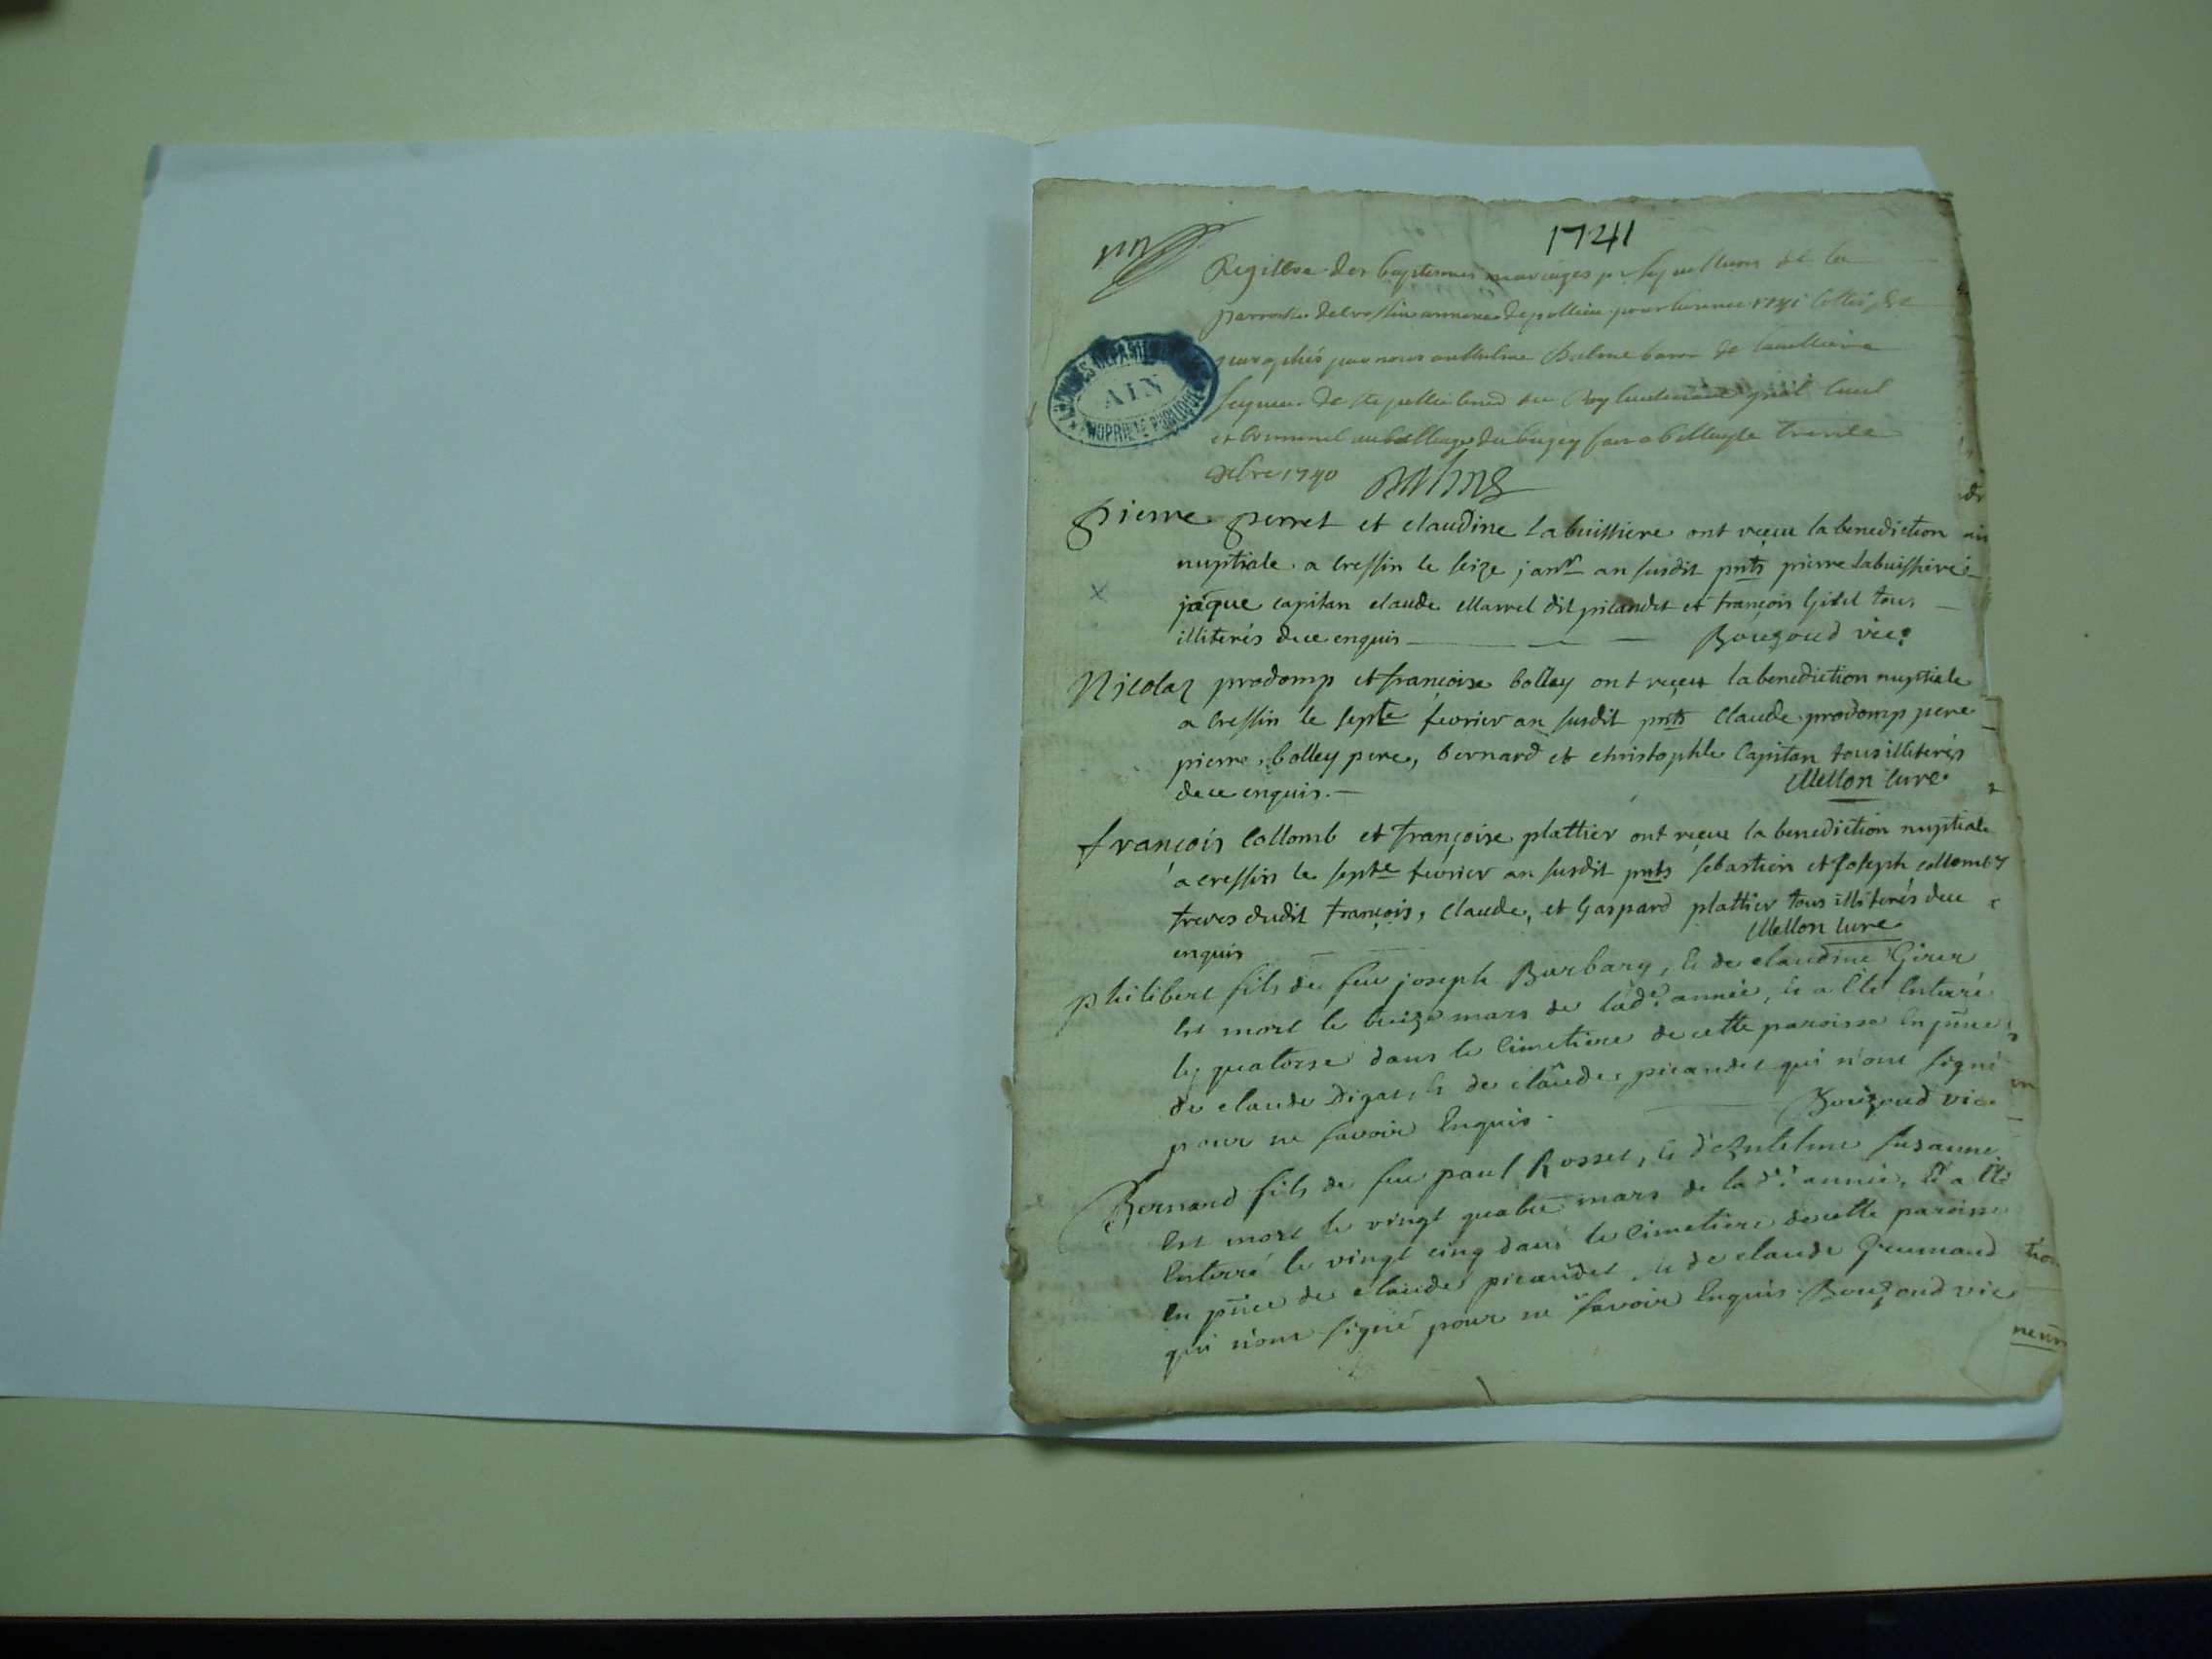 1741
Registre des baptesmes mariages sepultures de la
parroisse de cressin annexe de pollieu pour l'annee 1741 cottés et
paraphés par nous anthelme Balme baron de
seigneur de Ste du Roy lieutenant gnal civil
et criminel au balliage du bugey fait a belley le trente
Xbre 1740 Balme
ARCHIVES DEPARTEMENTALES
AIN
PROPRIETE PUBLIQUE
pierre perret et claudine Labuissiere ont reçeu la benediction
nuptiale a cressin le seize janr an susdit pnts pierre Labuissiere
jaque capitan claude Marrel dit picandet et françois tous
illiterés de ce enquis Bouzoud vic.
Nicolas prodomp et françoise bolley ont reçeu la benediction nuptiale
a cressin le septe fevrier an susdit pnts Claude prodomp pere
pierre bolley pere, bernard et christophle Capitan tous illiterés
de ce enquis. Mellon curé
françois Collomb et françoise plattier ont reçeu la benediction nuptiale
a cressin le septe fevrier an susdit pnts sebastien et joseph collomb
freres dudit françois, Claude, et Gaspard plattier tous illiterés de ce
enquis Mellon curé
philibert fils de feu joseph Barbary, et de claudine Girer
est mort le treize mars de lade. année, et a été enterré
le quatorse dans le cimetiere de cette paroisse en pnce
de claude Digat, et de claude picandet qui n'ont signé
pour ne savoir enquis. Bouzoud vic.
Bernard fils de feu paul Rosset, et d'Antelme susanne
est mort le vingt quatre mars de lade. année, et a été
enterré le vingt cinq dans le cimetiere de cette paroisse
en pnce de claude picandet, et de claude
qui n'ont signé pour ne savoir enquis. Bouzoud vic